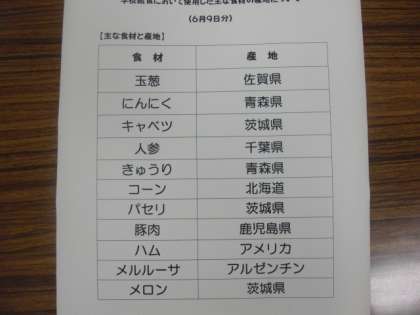 学校給食において使用した主な食材の産地について
(6月9日分)
【主な食材と産地】
食 材 産 地
玉葱 佐賀県
にんにく 青森県
キャベツ 茨城県
人参 千葉県
きゅうり 青森県
コーン 北海道
パセリ 茨城県
豚肉 鹿児島県
ハム アメリカ
メルルーサ アルゼンチン
メロン 茨城県